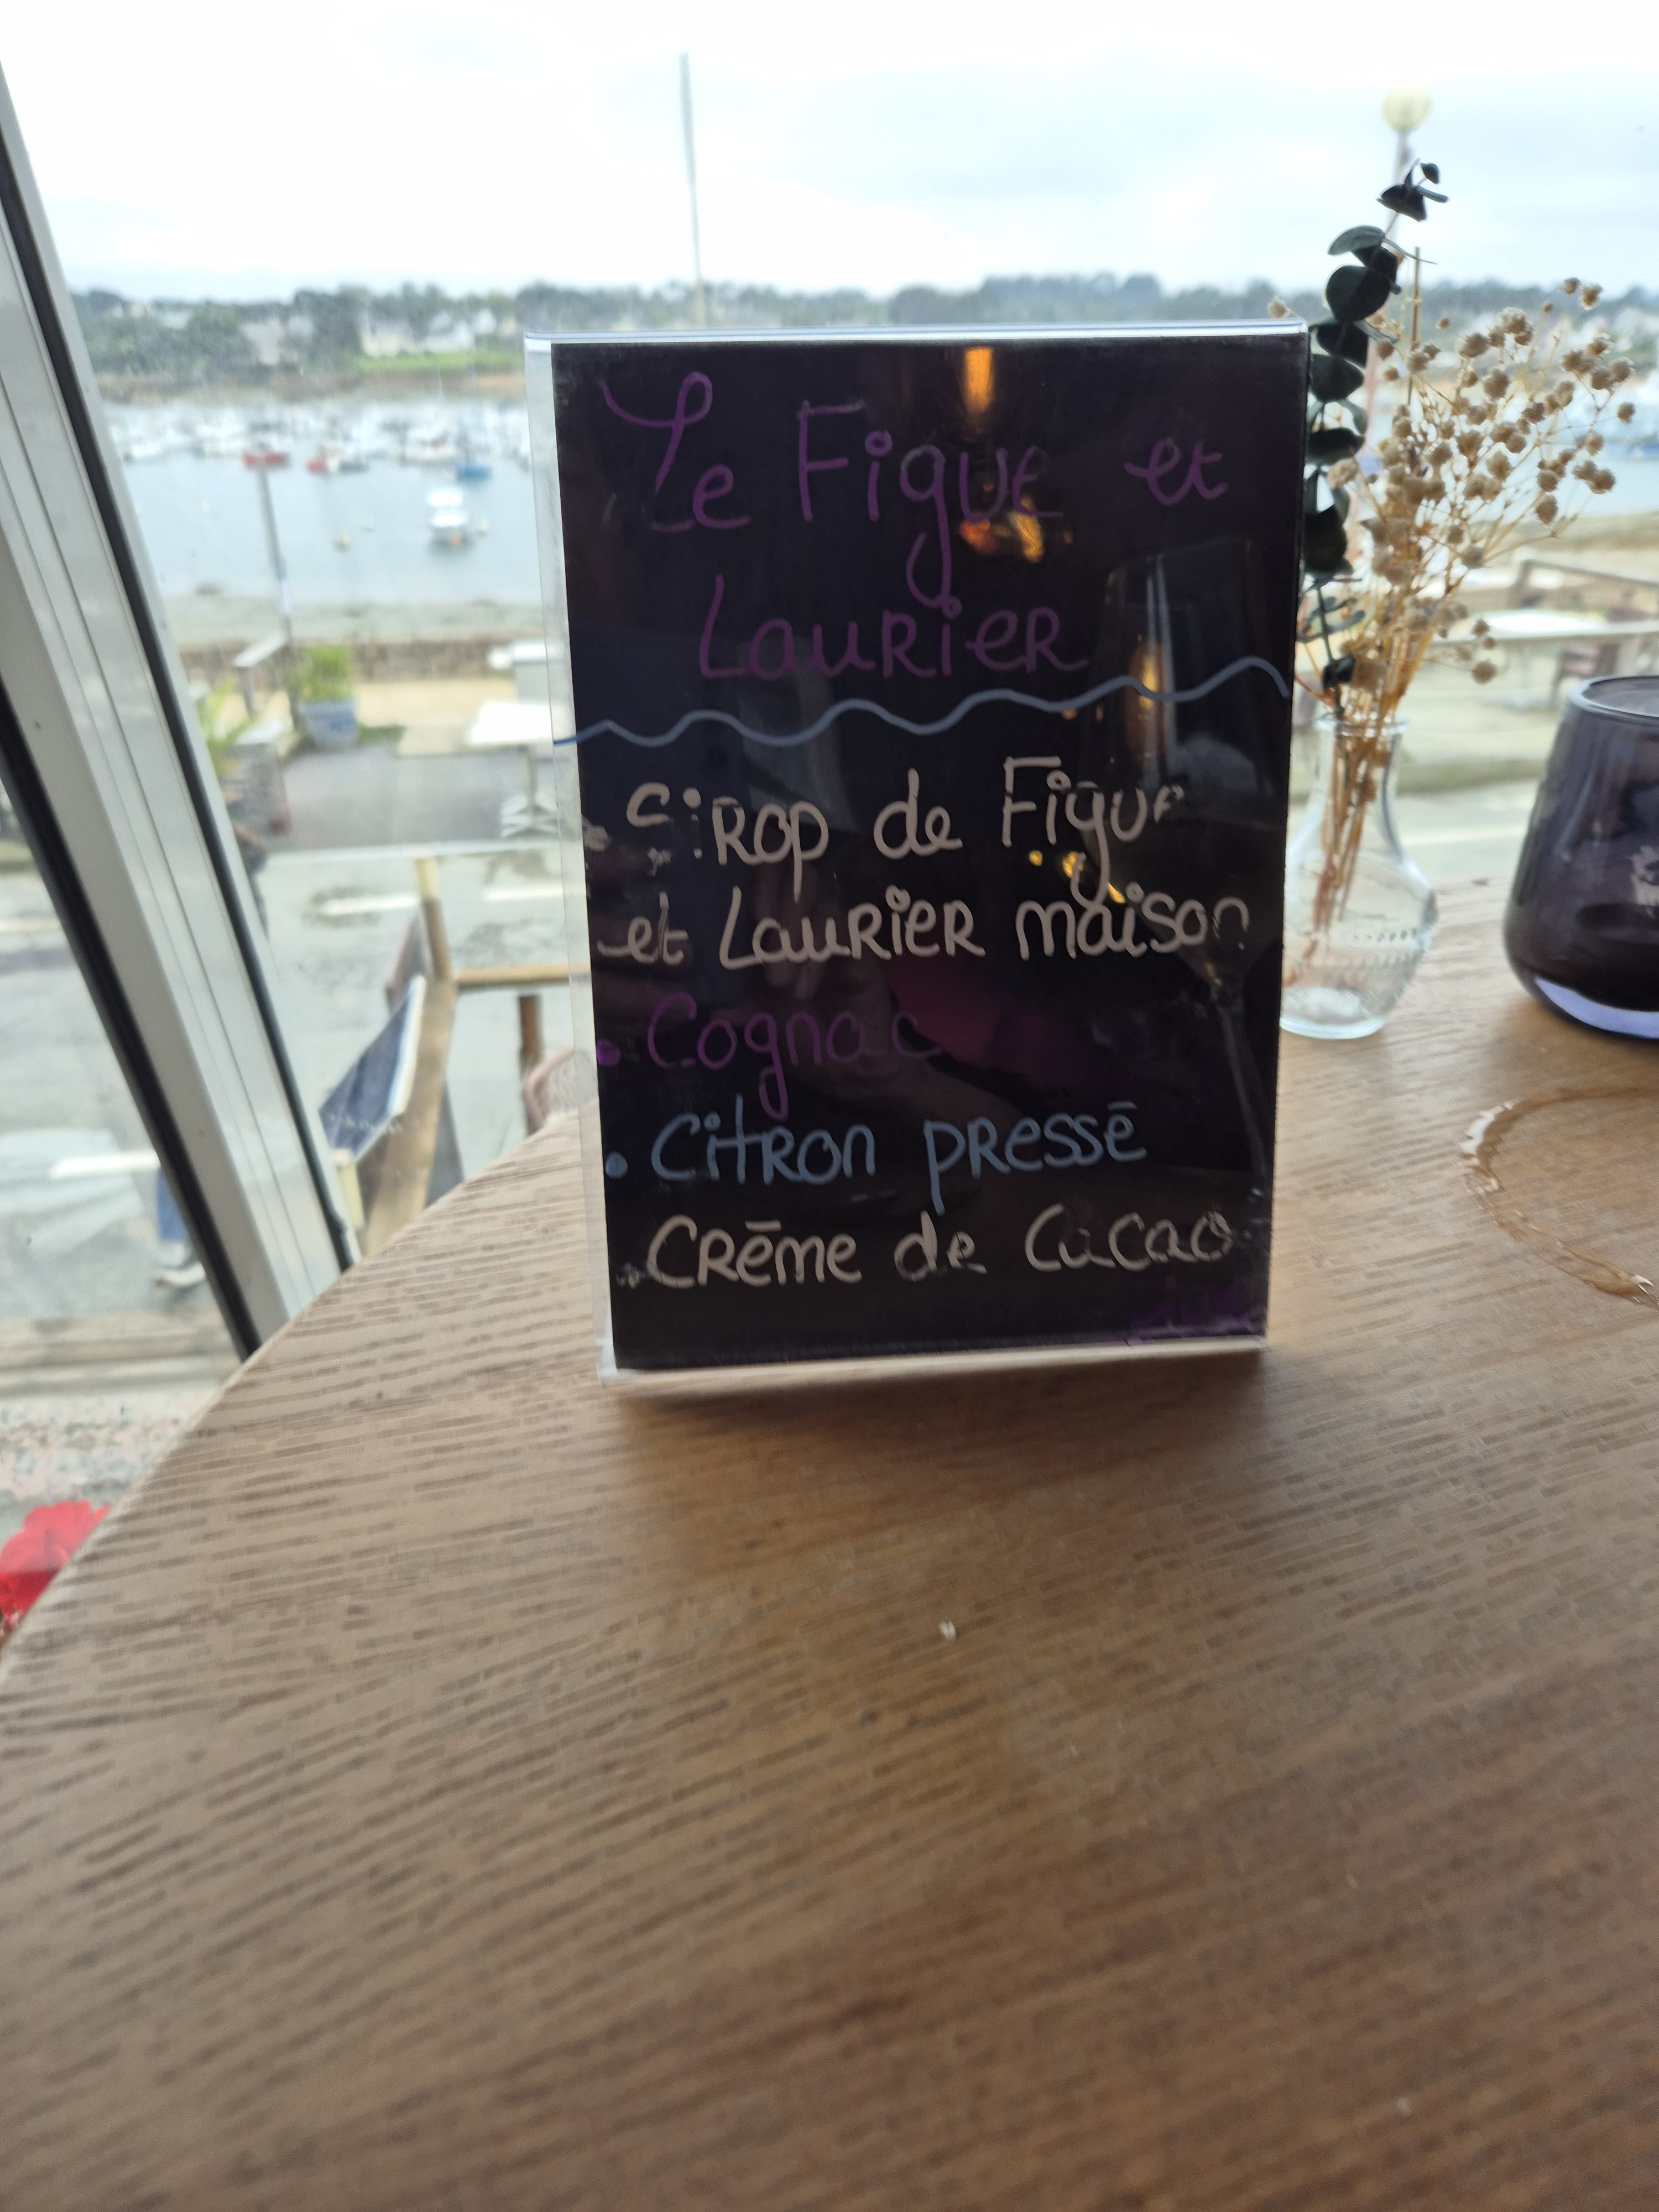 Le Figue et
Laurier
Sirop de Figue
et Laurier maison
• Cognac
• Citron pressé
• Crème de Cacao